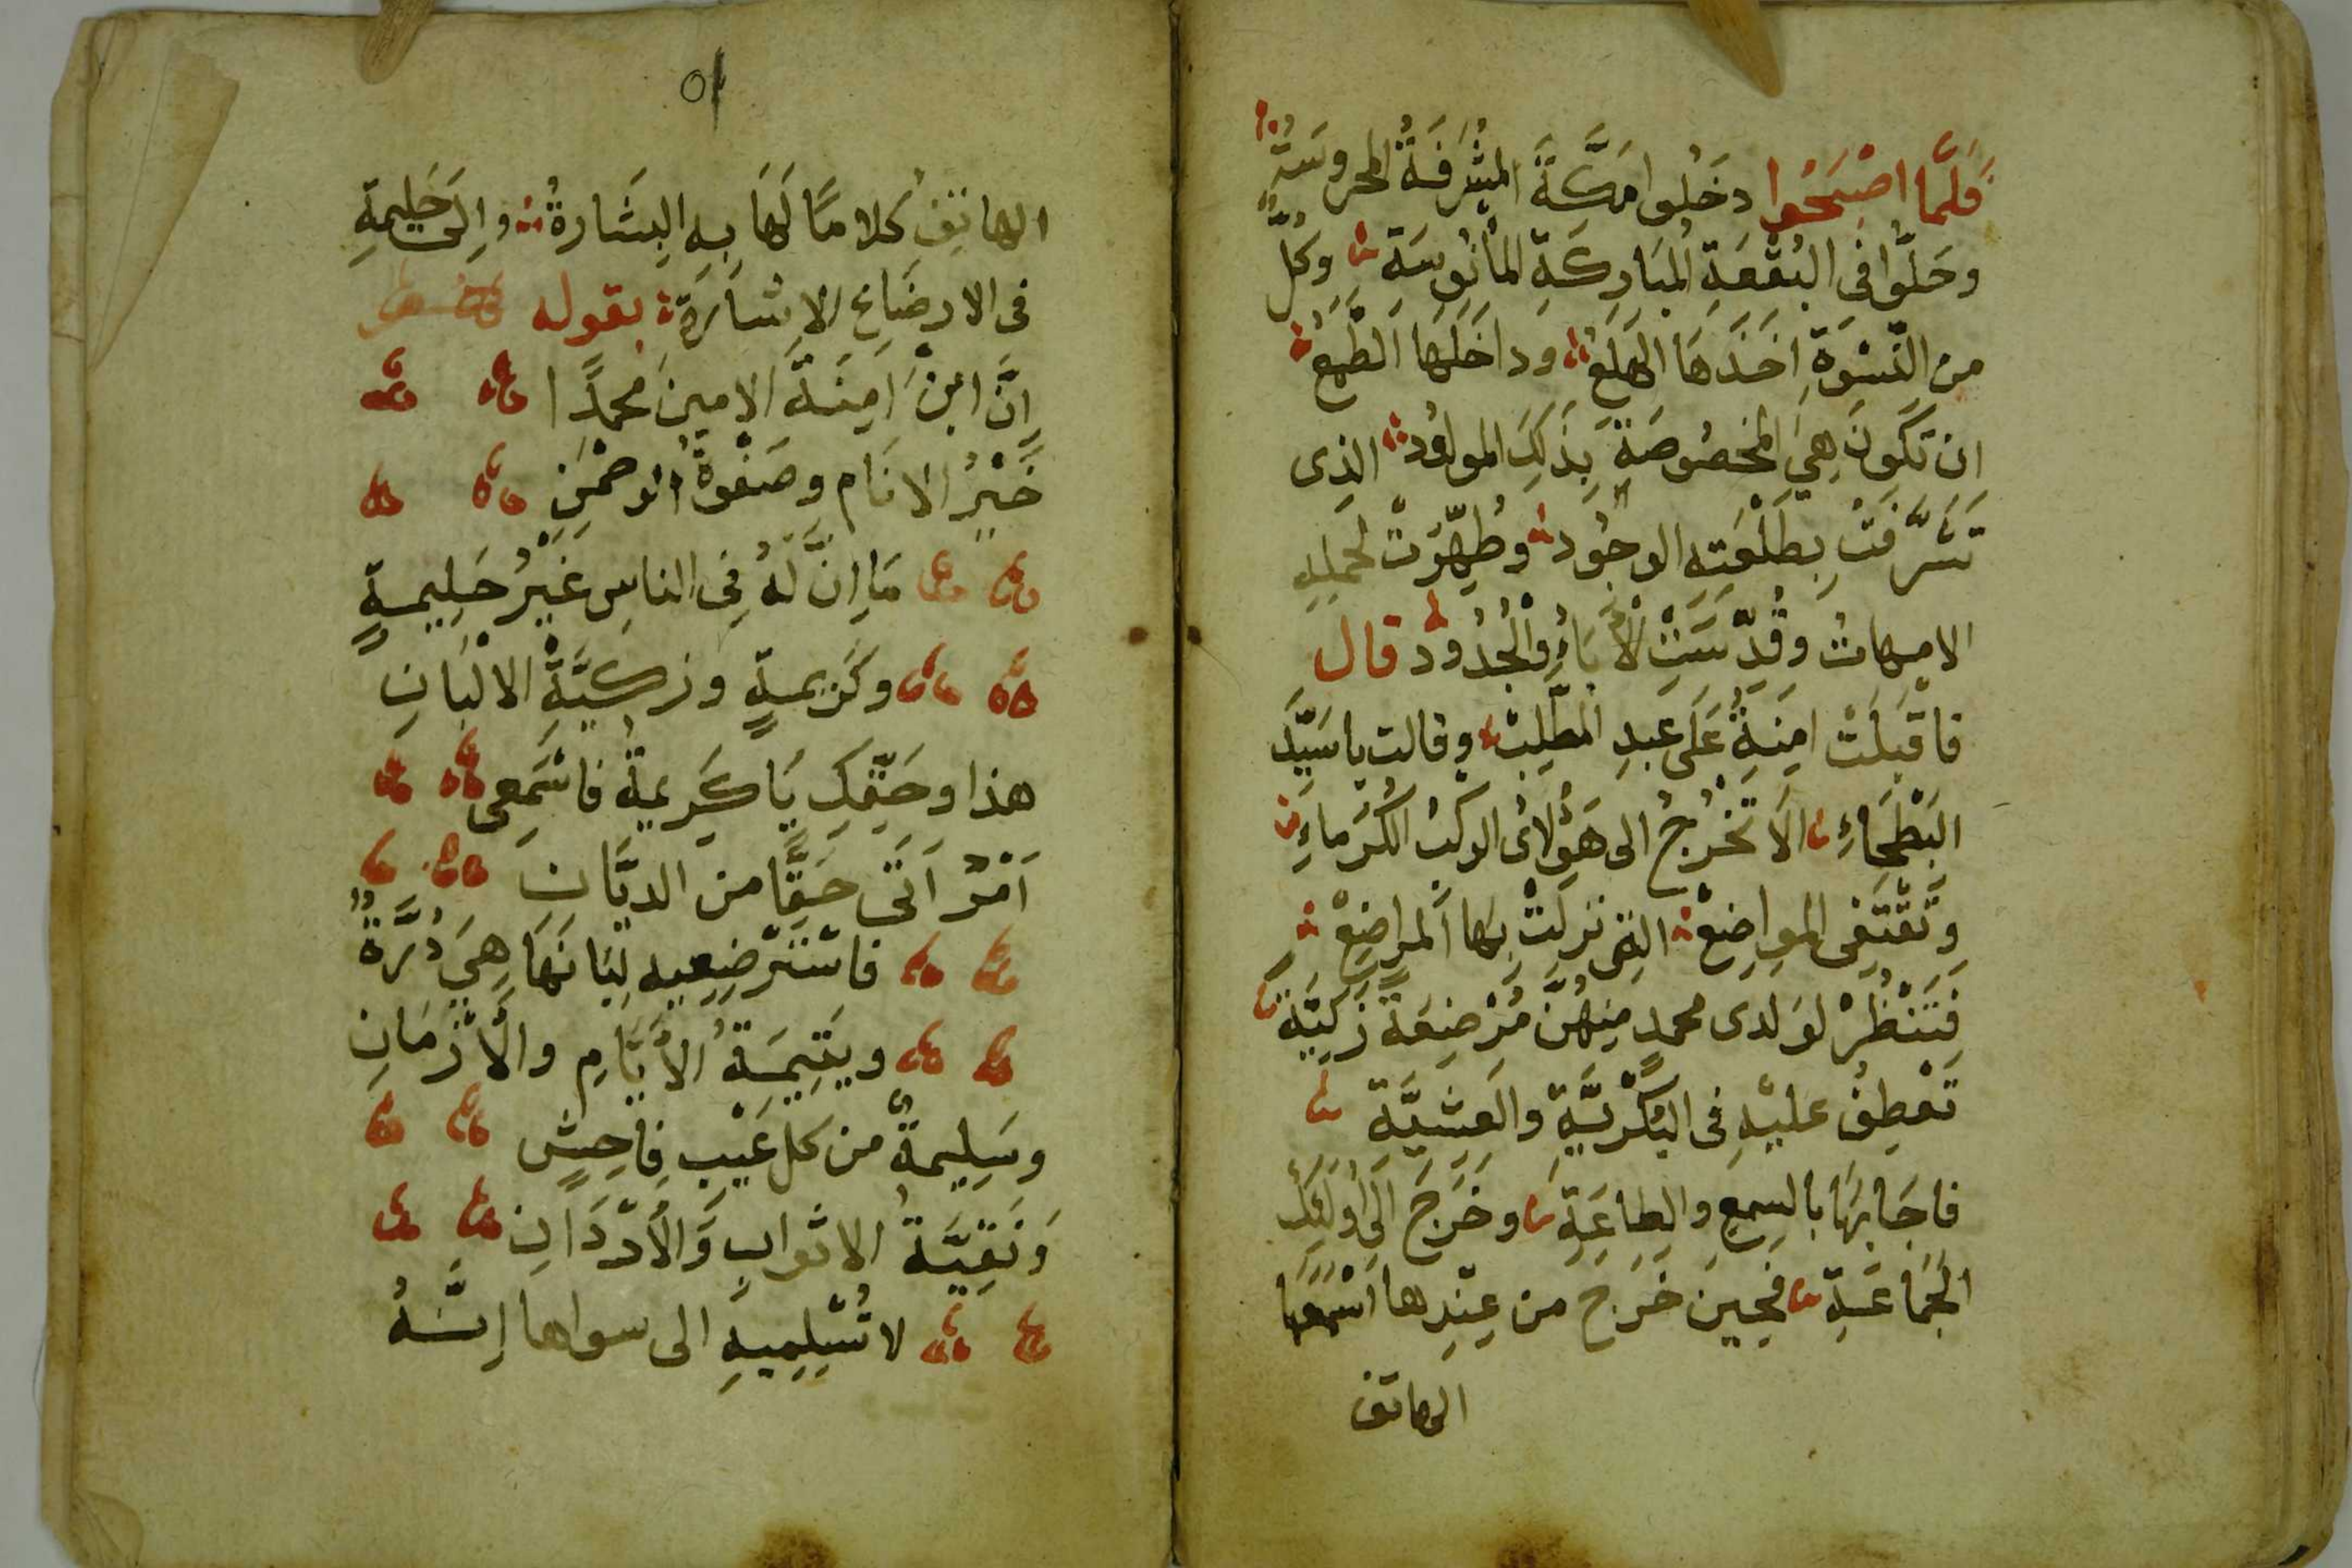 فَلَمَّا اصْبَحُوا دخَلُوا مَكَّةَ المشَرفَةُ المحروسَتُ
وحَلَّوُا فِى البُقْعَةِ المبَاركَةِ المأنُوسَةِ وكُلُّ
من النّسْوَةِ اخَذَهَا الهَلَعُ وداخَلَهَا الطَّمَعُ
ان تكُونَ هِىَ المخصُوصَةُ بذَلِكَ المولوُد الذى
تَشَرَّفَتْ بِطَلْعَتِهِ الوجُود وطُهِّرَتْ لحَملِهِ
الامهاتُ وقُدِّسَتْ الأبَاءُ والْجُدُود قال
فاقبَلَتْ امِنَةُ عَلَى عَبدِ المطَّلِبْ وقالت ياسَيّدَ
البَطْحَاءِ الاَ تخْرُجُ الى هَؤُلاىُ الركبُ الكُرَماءِ
وَتَقْتَفِى المواضِعْ التِى نزلَتْ بهَا المراضِعْ
فَتَنْظُرْ لوَلدى محمدٍ مِنهُنَّ مُرْضِعَةً زَكيّة
تَعْطِفُ عليْهِ فى البُكْريَّةِ والعَشيَّةِ
فاجَابهَا بالسمعِ والطاعَةِ وخَرَجَ الَى اوُلَئِكَ
الجَماعَةِ فحِينَ خَرَجَ من عِنْدِها اسْمَعَهَا
الهاتف
٥١
الهاتِفُ كلامًا لَهَا بِهِ البِشَارةُ والَى حَلِيمةِ
فى الارضَاعِ الاِشَارَةِ بقوله
اِنَّ ابنْ اَمِنَةَ الامينَ محمدًا
خَيْرُ الانَام وصَفْوةُ الرحمْنِ
مَا اِنَّ لَهُ فِى الناسِ غَيْرُ حَلِيمةٍ
وكَريمةٍ وزكيَّةِ الالْبَانِ
هذا وحَقِّكِ يَا كَرِيمةُ فاسْمَعِى
اَمْرٌ اَتَى حَقًّا من الديَّانِ
فاسْتَرْضِعِيهِ لِبَانَهَا هِىَ دُرَّةٌ
ويتِيمَةُ الأيَّامِ والأَزْمَانِ
وسَلِيمةٌ من كل عَيْبٍ فاحِشٍ
وَنَقِيَّةُ الاثوابِ وَالأَرْدَانِ
لا تُسْلِمِيهِ الى سواها اِنَّهُ